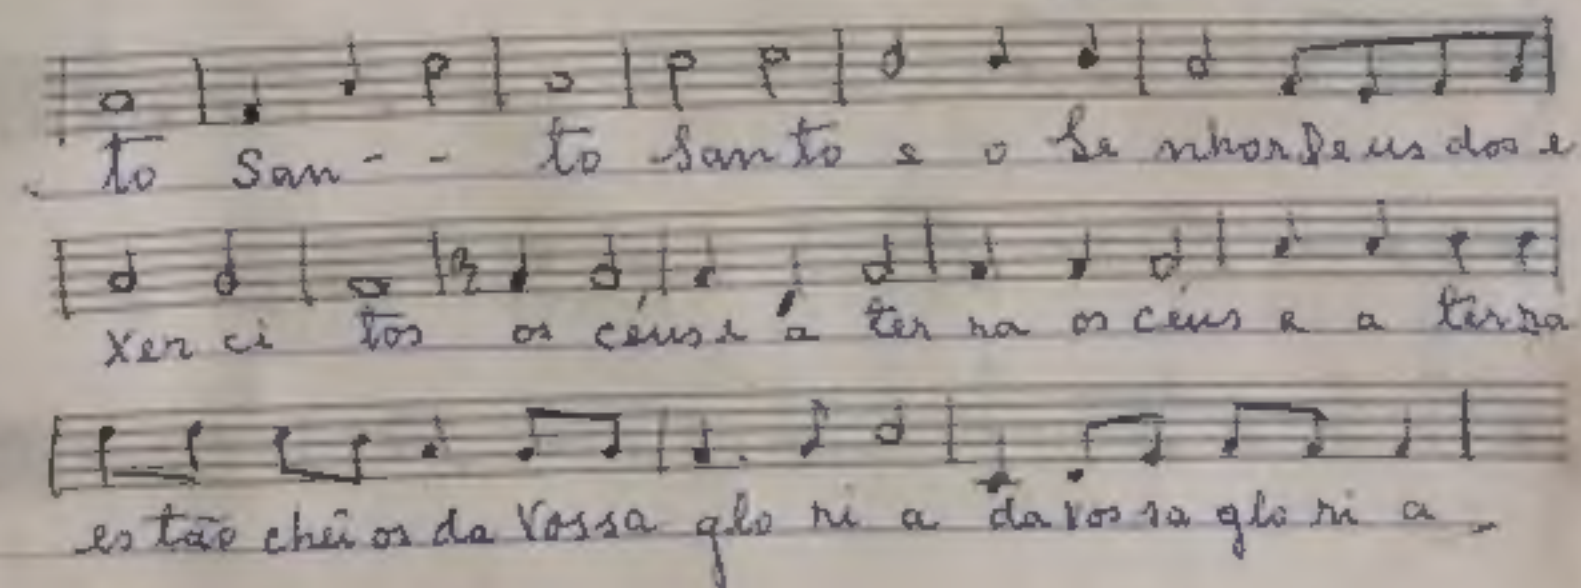 to San - - to Santo e o Se nhor Deus dos e
xer ci tos os céus e a ter ra os céus e a terra
es tão chei os da Vossa glo ri a da vos sa glo ri a